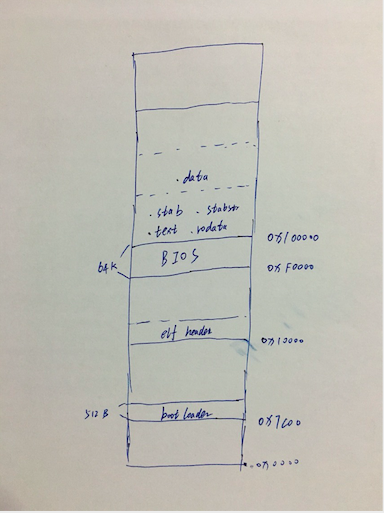 .data
.stab .stabstr
.text .rodata
0x100000
64K
BIOS
0xF0000
elf header
0x10000
512B
boot loader
0x7C00
0x0000